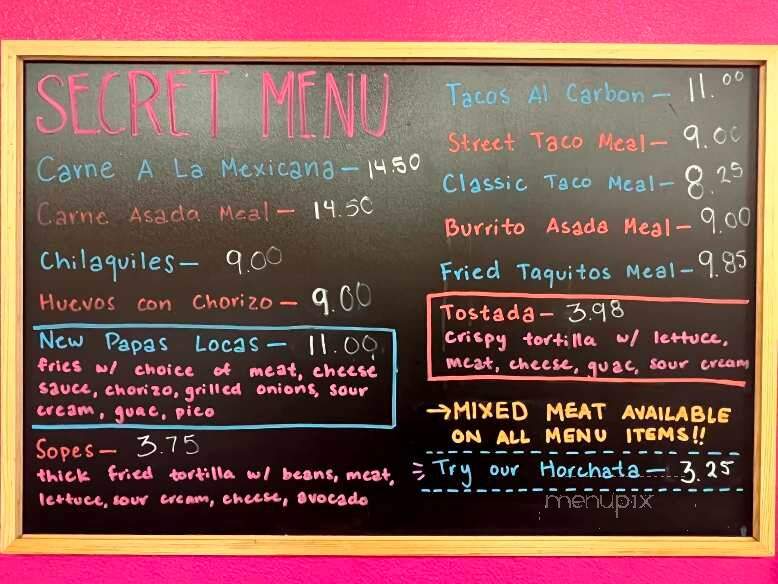 SECRET MENU
Carne A La Mexicana - 14.50
Carne Asada Meal - 14.50
Chilaquiles - 9.00
Huevos con Chorizo - 9.00
New Papas Locas - 11.00
fries w/ choice of meat, cheese
sauce, chorizo, grilled onions, sour
cream, guac, pico
Sopes - 3.75
thick fried tortilla w/ beans, meat,
lettuce, sour cream, cheese, avocado
Tacos Al Carbon - 11.00
Street Taco Meal - 9.00
Classic Taco Meal - 8.25
Burrito Asada Meal - 9.00
Fried Taquitos Meal - 9.85
Tostada - 3.98
crispy tortilla w/ lettuce,
meat, cheese, guac, sour cream
→MIXED MEAT AVAILABLE
ON ALL MENU ITEMS!!
Try our Horchata - 3.25
menupix